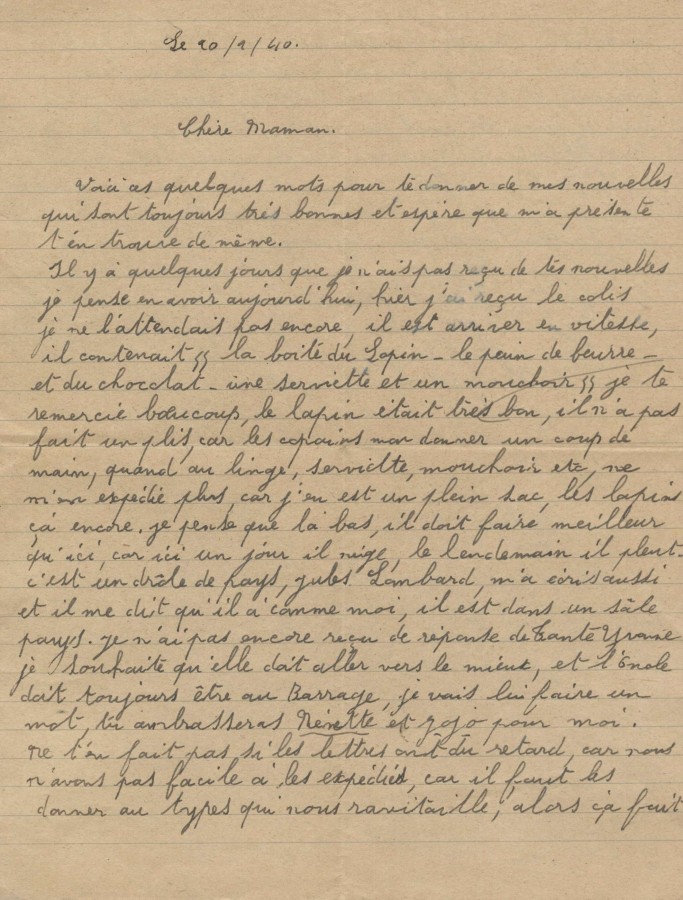 Le 20/2/40.
Chère Maman.
Voici ces quelques mots pour te donner de mes nouvelles
qui sont toujours très bonnes et espère que m'a présente
t'en trouve de même.
Il y a quelques jours que je n'ais pas reçu de tes nouvelles
je pense en avoir aujourd'hui, hier j'ai reçu le colis
je ne l'attendais pas encore, il est arriver en vitesse,
il contenait la boite du Lapin - le pain de beurre -
et du chocolat - une serviette et un mouchoir je te
remercie beaucoup, le lapin était très bon, il n'a pas
fait un plis, car les copains mon donner un coup de
main, quand au linge, serviette, mouchoir etc, ne
m'en expédie plus, car j'en est un plein sac, les lapins
ça encore. je pense que la bas, il doit faire meilleur
qu'ici, car ici un jour il neige, le lendemain il pleut.
c'est un drôle de pays, Jules Lombard, m'a écris aussi
et il me dit qu'il a comme moi, il est dans un sâle
pays. Je n'ai pas encore reçu de réponse de Tante Yvonne
je souhaite qu'elle doit aller vers le mieux, et l'Oncle
doit toujours être au Barrage, je vais lui faire un
mot, tu ambrasseras Renette et Jojo pour moi.
Ne t'en fait pas si les lettres ont du retard, car nous
n'avons pas facile a les expédiés, car il faut les
donner au types qui nous ravitaille, alors ça fait